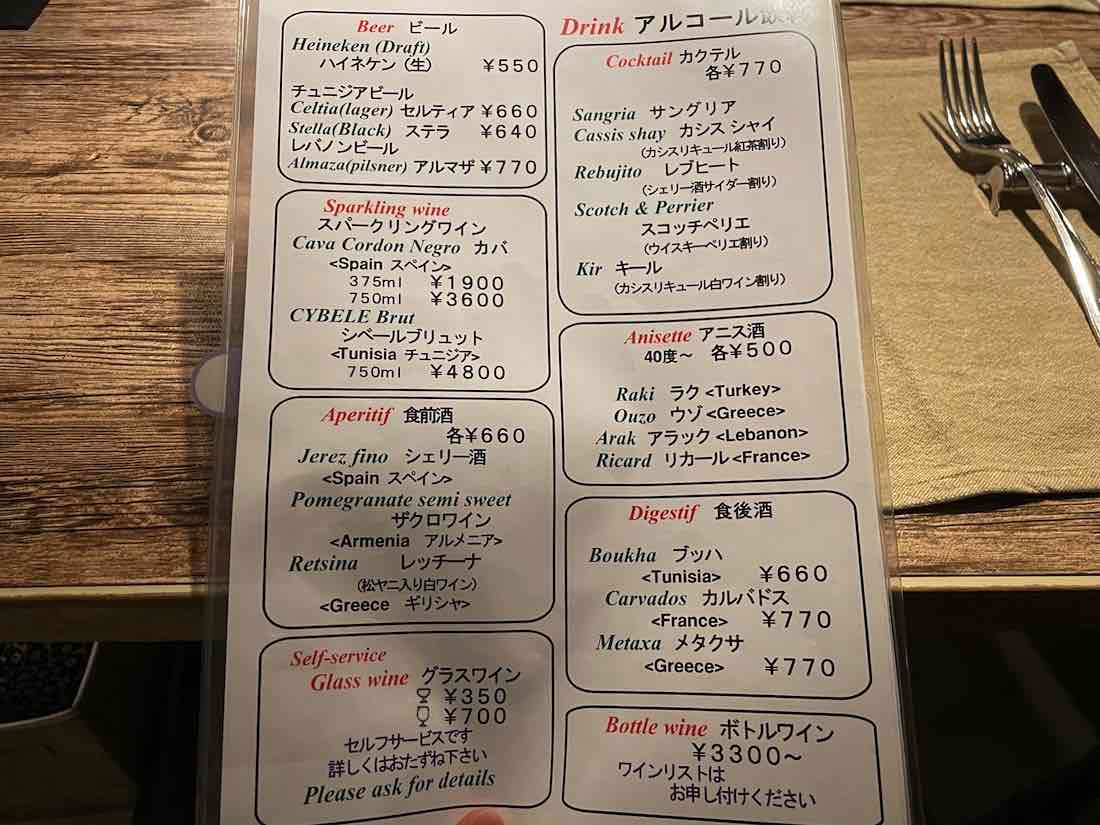 Beer ビール
Heineken (Draft)
ハイネケン（生） ¥550
チュニジアビール
Celtia(lager) セルティア ¥660
Stella(Black) ステラ ¥640
レバノンビール
Almaza(pilsner) アルマザ ¥770
Sparkling wine
スパークリングワイン
Cava Cordon Negro カバ
<Spain スペイン>
375ml ¥1900
750ml ¥3600
CYBELE Brut
シベールブリュット
<Tunisia チュニジア>
750ml ¥4800
Aperitif 食前酒
各¥660
Jerez fino シェリー酒
<Spain スペイン>
Pomegranate semi sweet
ザクロワイン
<Armenia アルメニア>
Retsina レッチーナ
（松ヤニ入り白ワイン）
<Greece ギリシャ>
Self-service
Glass wine グラスワイン
¥350
¥700
セルフサービスです
詳しくはおたずね下さい
Please ask for details
Drink アルコール飲料
Cocktail カクテル
各¥770
Sangria サングリア
Cassis shay カシス シャイ
（カシスリキュール紅茶割り）
Rebujito レブヒート
（シェリー酒サイダー割り）
Scotch & Perrier
スコッチペリエ
（ウイスキーペリエ割り）
Kir キール
（カシスリキュール白ワイン割り）
Anisette アニス酒
40度～ 各¥500
Raki ラク <Turkey>
Ouzo ウゾ <Greece>
Arak アラック <Lebanon>
Ricard リカール <France>
Digestif 食後酒
Boukha ブッハ
<Tunisia> ¥660
Carvados カルバドス
<France> ¥770
Metaxa メタクサ
<Greece> ¥770
Bottle wine ボトルワイン
¥3300～
ワインリストは
お申し付けください